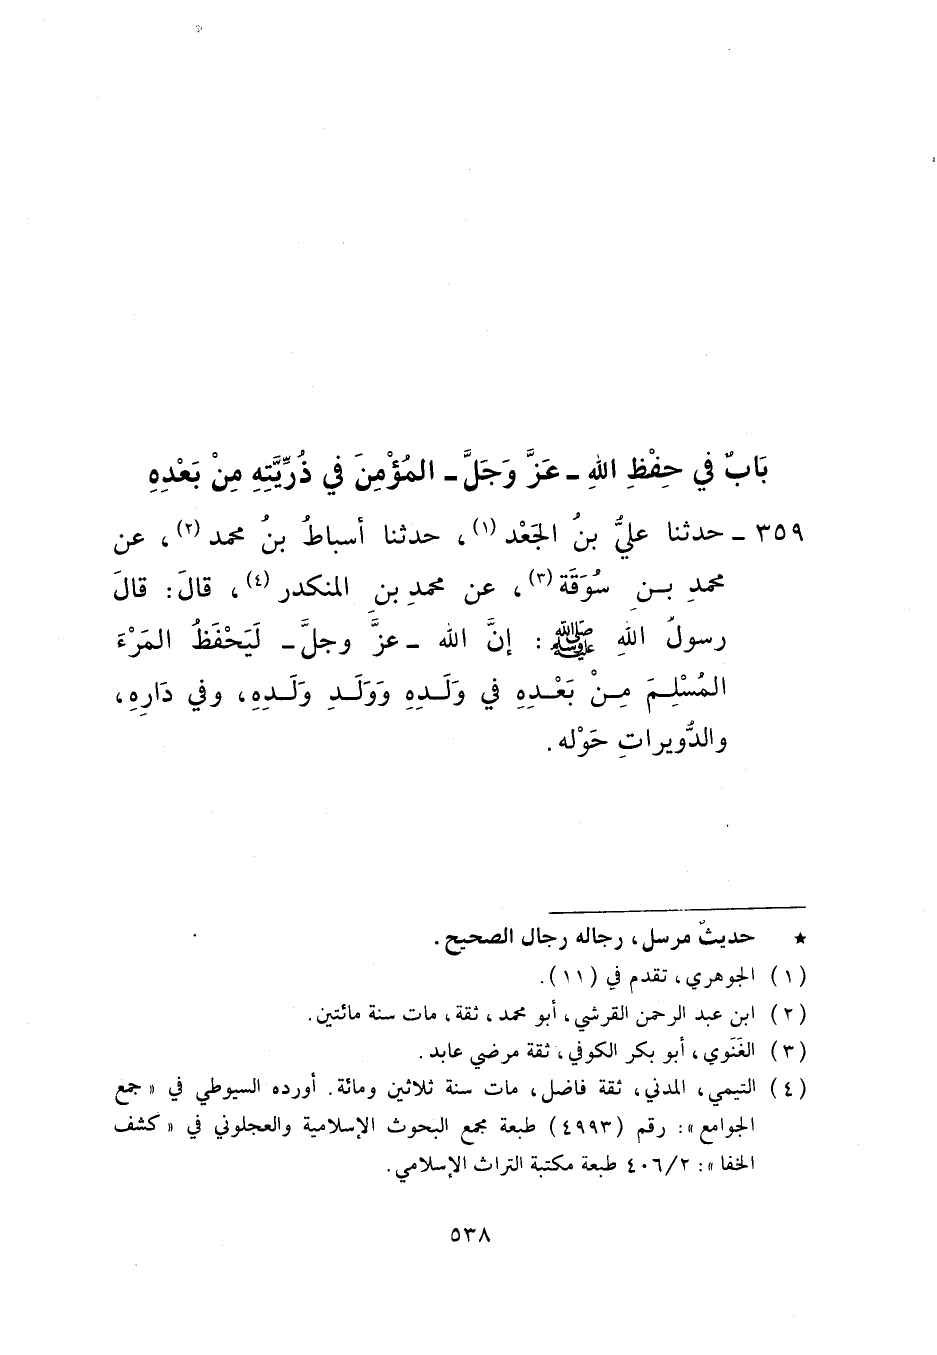 بَابٌ في حِفْظِ اللهِ - عَزَّ وَجَلَّ - المُؤْمِنَ في ذُرِّيَّتِهِ مِنْ بَعْدِهِ
٣٥٩ - حدثنا عليُّ بنُ الجَعْد (١)، حدثنا أسباطُ بنُ محمد (٢)، عن
محمدِ بنِ سُوَقَة (٣)، عن محمدِ بنِ المنكدر (٤)، قالَ: قالَ
رسولُ اللهِ ﷺ: إنَّ الله - عزَّ وجلَّ - لَيَحْفَظُ المَرْءَ
المُسْلِمَ مِنْ بَعْدِهِ في وَلَدِهِ وَوَلَدِ وَلَدِهِ، وفي دَارِهِ،
والدُّويراتِ حَوْله .
★ حديثٌ مرسل، رجاله رجال الصحيح .
(١) الجوهري، تقدم في (١١).
(٢) ابن عبد الرحمن القرشي، أبو محمد، ثقة، مات سنة مائتين.
(٣) الغَنَوي، أبو بكر الكوفي، ثقة مرضي عابد .
(٤) التيمي، المدني، ثقة فاضل، مات سنة ثلاثين ومائة. أورده السيوطي في « جمع
الجوامع »: رقم (٤٩٩٣) طبعة مجمع البحوث الإسلامية والعجلوني في « كشف
الخفا »: ٤٠٦/٢ طبعة مكتبة التراث الإسلامي .
٥٣٨